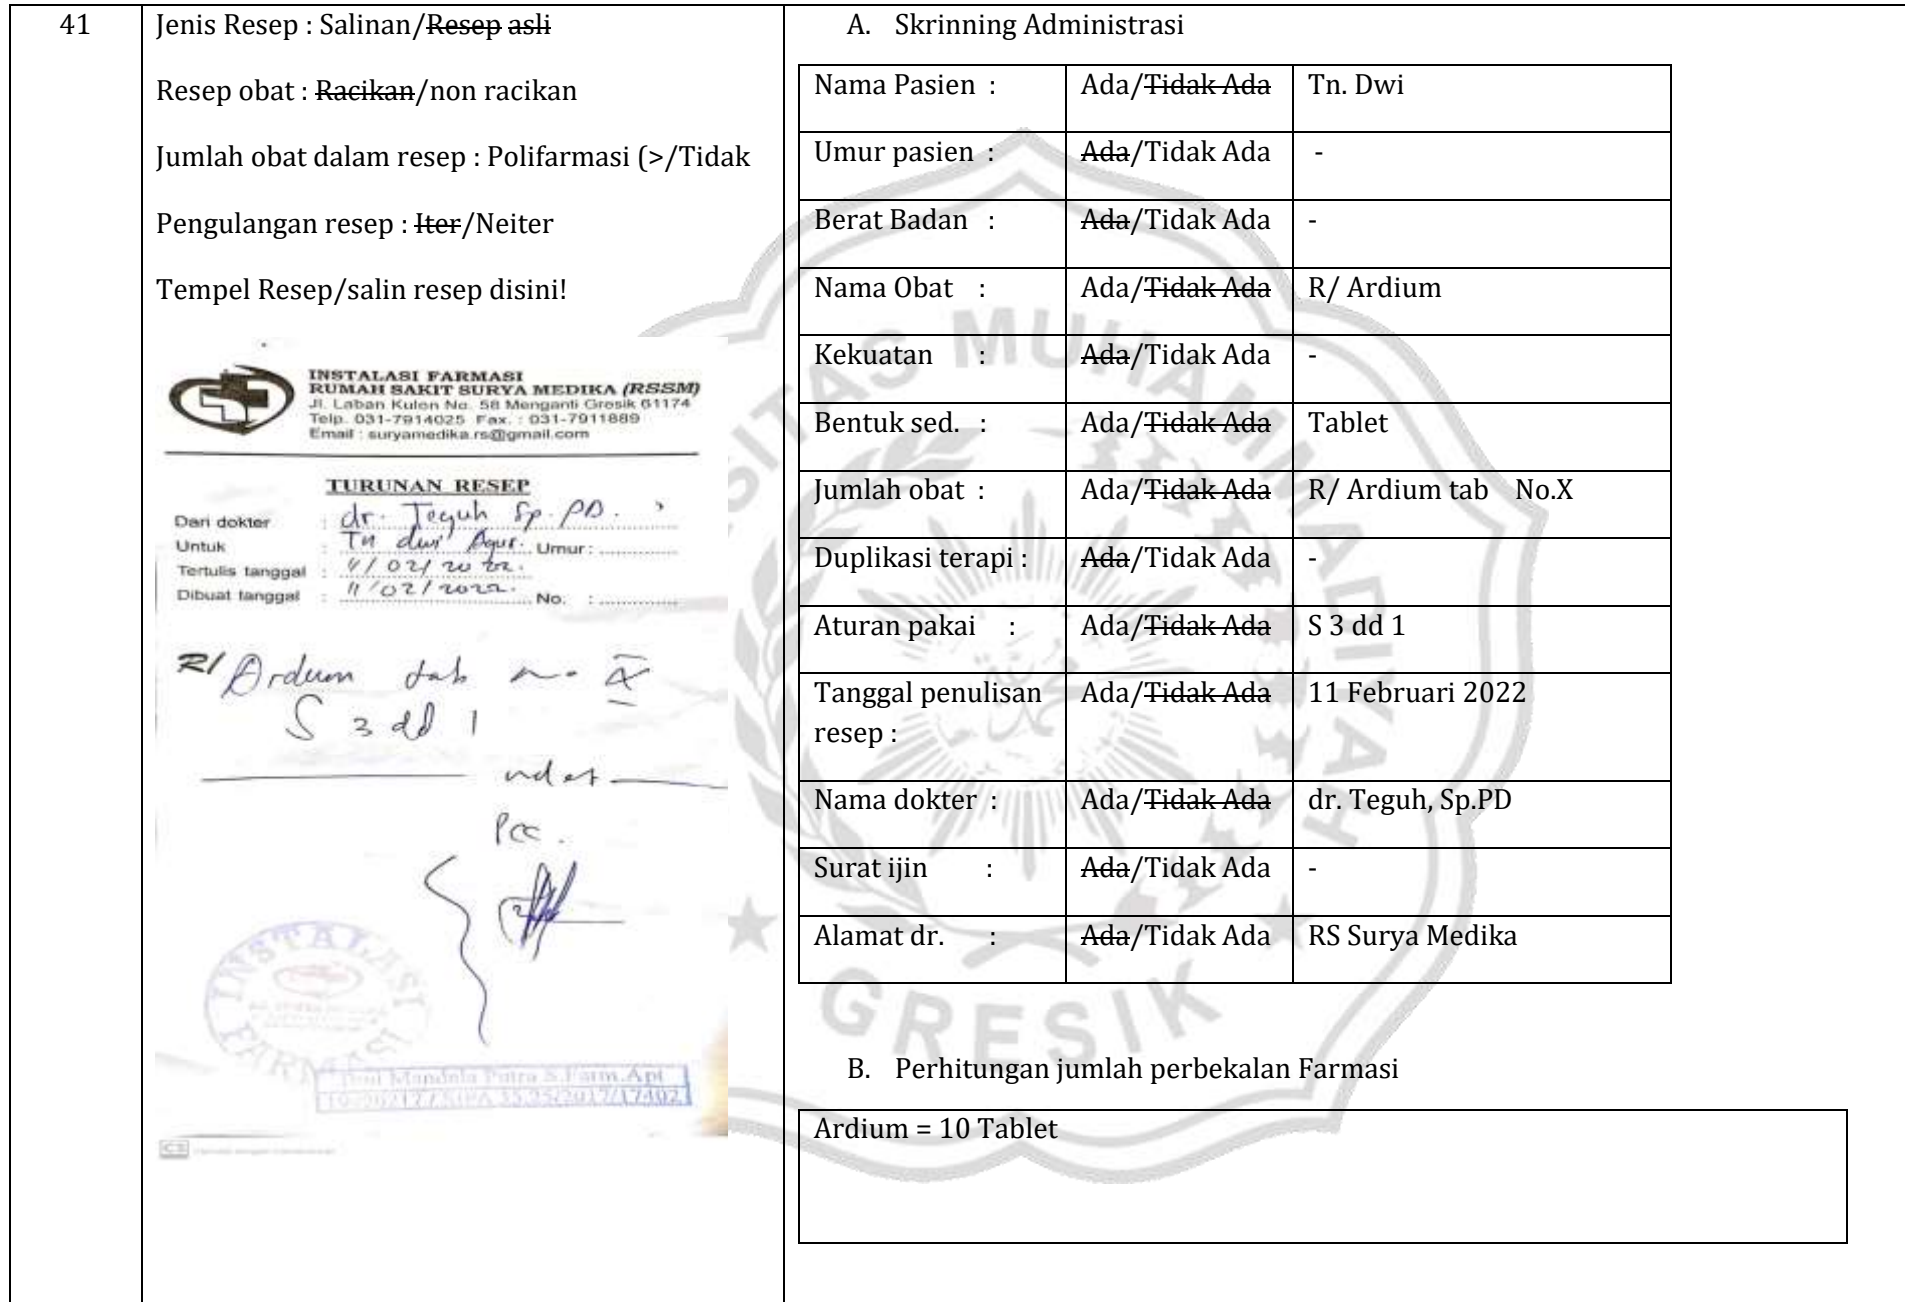 41
Jenis Resep : Salinan/Resep asli
Resep obat : Racikan/non racikan
Jumlah obat dalam resep : Polifarmasi (>/Tidak
Pengulangan resep : Iter/Neiter
Tempel Resep/salin resep disini!
INSTALASI FARMASI
RUMAH SAKIT SURYA MEDIKA (RSSM)
Jl. Laban Kulon No. 58 Menganti Gresik 61174
Telp. 031-7914025 Fax. : 031-7911889
Email : suryamedika.rs@gmail.com
TURUNAN RESEP
Dari dokter : dr. Teguh Sp.PD.
Untuk : Tn dwi Agus. Umur :
Tertulis tanggal : 11/02/2022.
Dibuat tanggal : 11/02/2022. No. :
R/ Ardium tab no X
S 3 dd 1
ndet
Pcc.
INSTALASI
FARMASI
Mandala Putra S.Farm.Apt
A. Skrinning Administrasi
Nama Pasien : Ada/Tidak Ada Tn. Dwi
Umur pasien : Ada/Tidak Ada -
Berat Badan : Ada/Tidak Ada -
Nama Obat : Ada/Tidak Ada R/ Ardium
Kekuatan : Ada/Tidak Ada -
Bentuk sed. : Ada/Tidak Ada Tablet
Jumlah obat : Ada/Tidak Ada R/ Ardium tab No.X
Duplikasi terapi : Ada/Tidak Ada -
Aturan pakai : Ada/Tidak Ada S 3 dd 1
Tanggal penulisan Ada/Tidak Ada 11 Februari 2022
resep :
Nama dokter : Ada/Tidak Ada dr. Teguh, Sp.PD
Surat ijin : Ada/Tidak Ada -
Alamat dr. : Ada/Tidak Ada RS Surya Medika
B. Perhitungan jumlah perbekalan Farmasi
Ardium = 10 Tablet
MUHAMMADIYAH
GRESIK